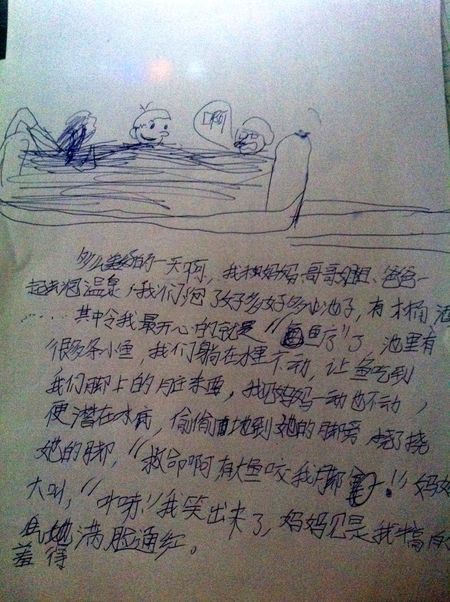 啊
多么美好的一天啊，我和妈妈、哥哥、姐姐、爸爸一
起去泡温泉，我们泡了好多好多池子，有木桶
……其中令我最开心的就是“鱼疗”了，池里有
很多条小鱼，我们躺在水里不动，让鱼吃到
我们脚上的脏东西，我见妈妈一动也不动，
便潜在水底，偷偷地到她的脚旁挠了挠
她的脚，“救命啊有大鱼咬我脚！”妈妈
大叫，“扑哧”我笑出来了，妈妈见是我搞的
羞得满脸通红。